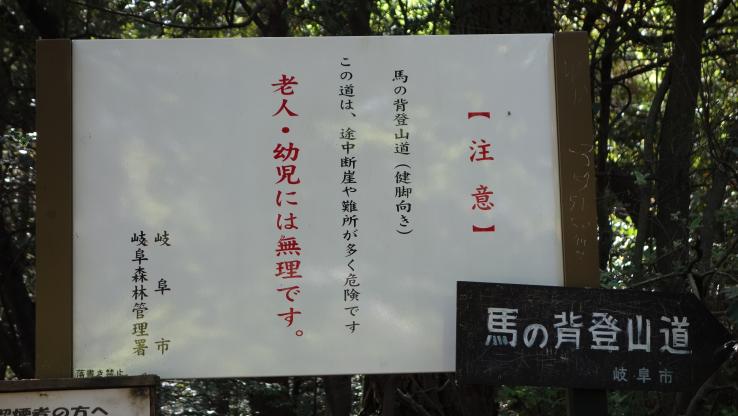 【注意】
馬の背登山道（健脚向き）
この道は、途中断崖や難所が多く危険です
老人・幼児には無理です。
岐阜市
岐阜森林管理署
落書き禁止
馬の背登山道
岐阜市
喫煙者の方へ